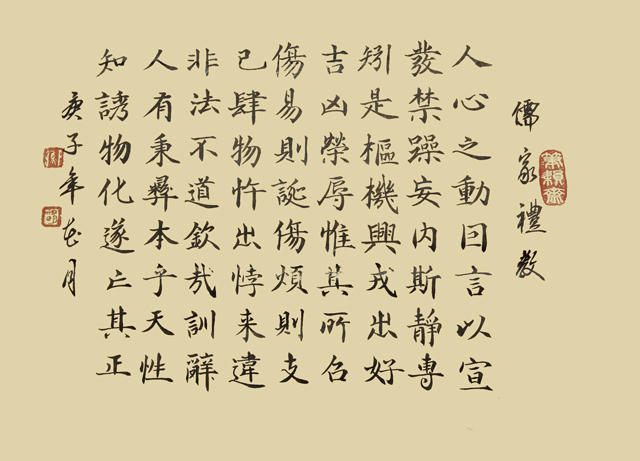 儒家禮教
人心之動囙言以宣
發禁躁妄内斯靜專
矧是樞機興戎出好
吉凶榮辱惟其所召
傷易則誕傷煩則支
己肆物忤出悖来違
非法不道欽哉訓辭
人有秉彝本乎天性
知誘物化遂亡其正
庚子年花月